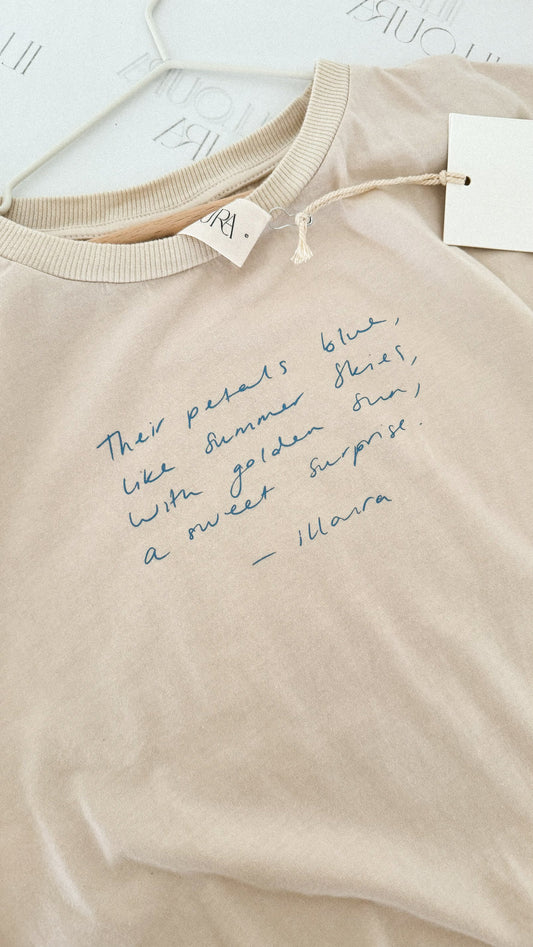 ILL
OURA
ILLOURA
URA
Their petals blue,
like summer skies,
with golden sun,
a sweet surprise.
— illoura